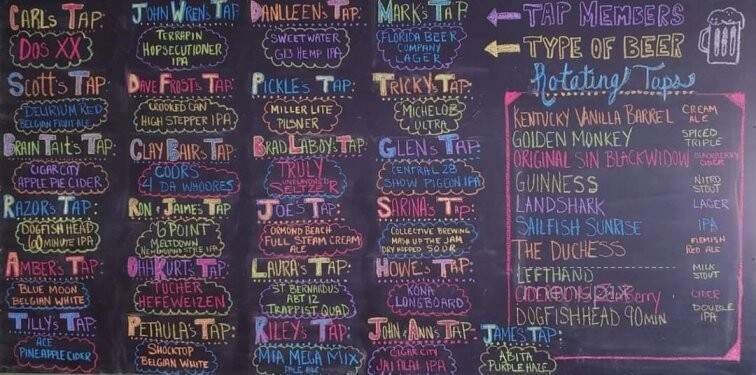 CARL'S TAP:
DOS XX
JOHN WREN'S TAP
TERRAPIN
HOPSECUTIONER
IPA
DANLLEEN'S TAP:
SWEETWATER
G13 HEMP IPA
MARK'S TAP:
FLORIDA BEER
COMPANY
LAGER
SCOTT'S TAP:
DELIRIUM RED
BELGIAN FRUIT ALE
DAVE FROST'S TAP:
CROOKED CAN
HIGH STEPPER IPA
PICKLE'S TAP:
MILLER LITE
PILSNER
TRICKY'S TAP:
MICHELOB
ULTRA
BRAIN TAIT'S TAP:
CIGAR CITY
APPLE PIE CIDER
CLAY BAIR'S TAP:
COORS
4 DA WHOORES
BRAD LABOY'S TAP:
TRULY
UNFLAVORED
SELTZER
GLEN'S TAP:
CENTRAL 28
SHOW PIGEON IPA
RAZOR'S TAP:
DOGFISH HEAD
60 MINUTE IPA
RON & JAIME'S TAP:
6 POINT
MELTDOWN
NEW ENGLAND STYLE IPA
JOE'S TAP:
ORMOND BEACH
FULL STEAM CREAM
ALE
SARINA'S TAP:
COLLECTIVE BREWING
MASH UP THE JAM
DRY HOPPED SOUR
AMBER'S TAP:
BLUE MOON
BELGIAN WHITE
OHHKURT'S TAP:
TUCHER
HEFEWEIZEN
LAURA'S TAP:
ST BERNARDUS
ABT 12
TRAPPIST QUAD
HOWE'S TAP:
KONA
LONGBOARD
TILLY'S TAP:
ACE
PINEAPPLE CIDER
PETHULA'S TAP:
SHOCKTOP
BELGIAN WHITE
RILEY'S TAP:
MIA MEGA MIX
PALE ALE
JOHN & ANN'S TAP:
CIGAR CITY
JAI ALAI IPA
JAMES TAP:
ABITA
PURPLE HAZE
TAP MEMBERS
TYPE OF BEER
Rotating Taps
KENTUCKY VANILLA BARREL CREAM ALE
GOLDEN MONKEY SPICED TRIPLE
ORIGINAL SIN BLACKWIDOW BLACKBERRY CIDER
GUINNESS NITRO STOUT
LANDSHARK LAGER
SAILFISH SUNRISE IPA
THE DUCHESS FLEMISH RED ALE
LEFTHAND MILK STOUT
CIDERBOYS Berry CIDER
DOGFISHHEAD 90 MIN DOUBLE IPA